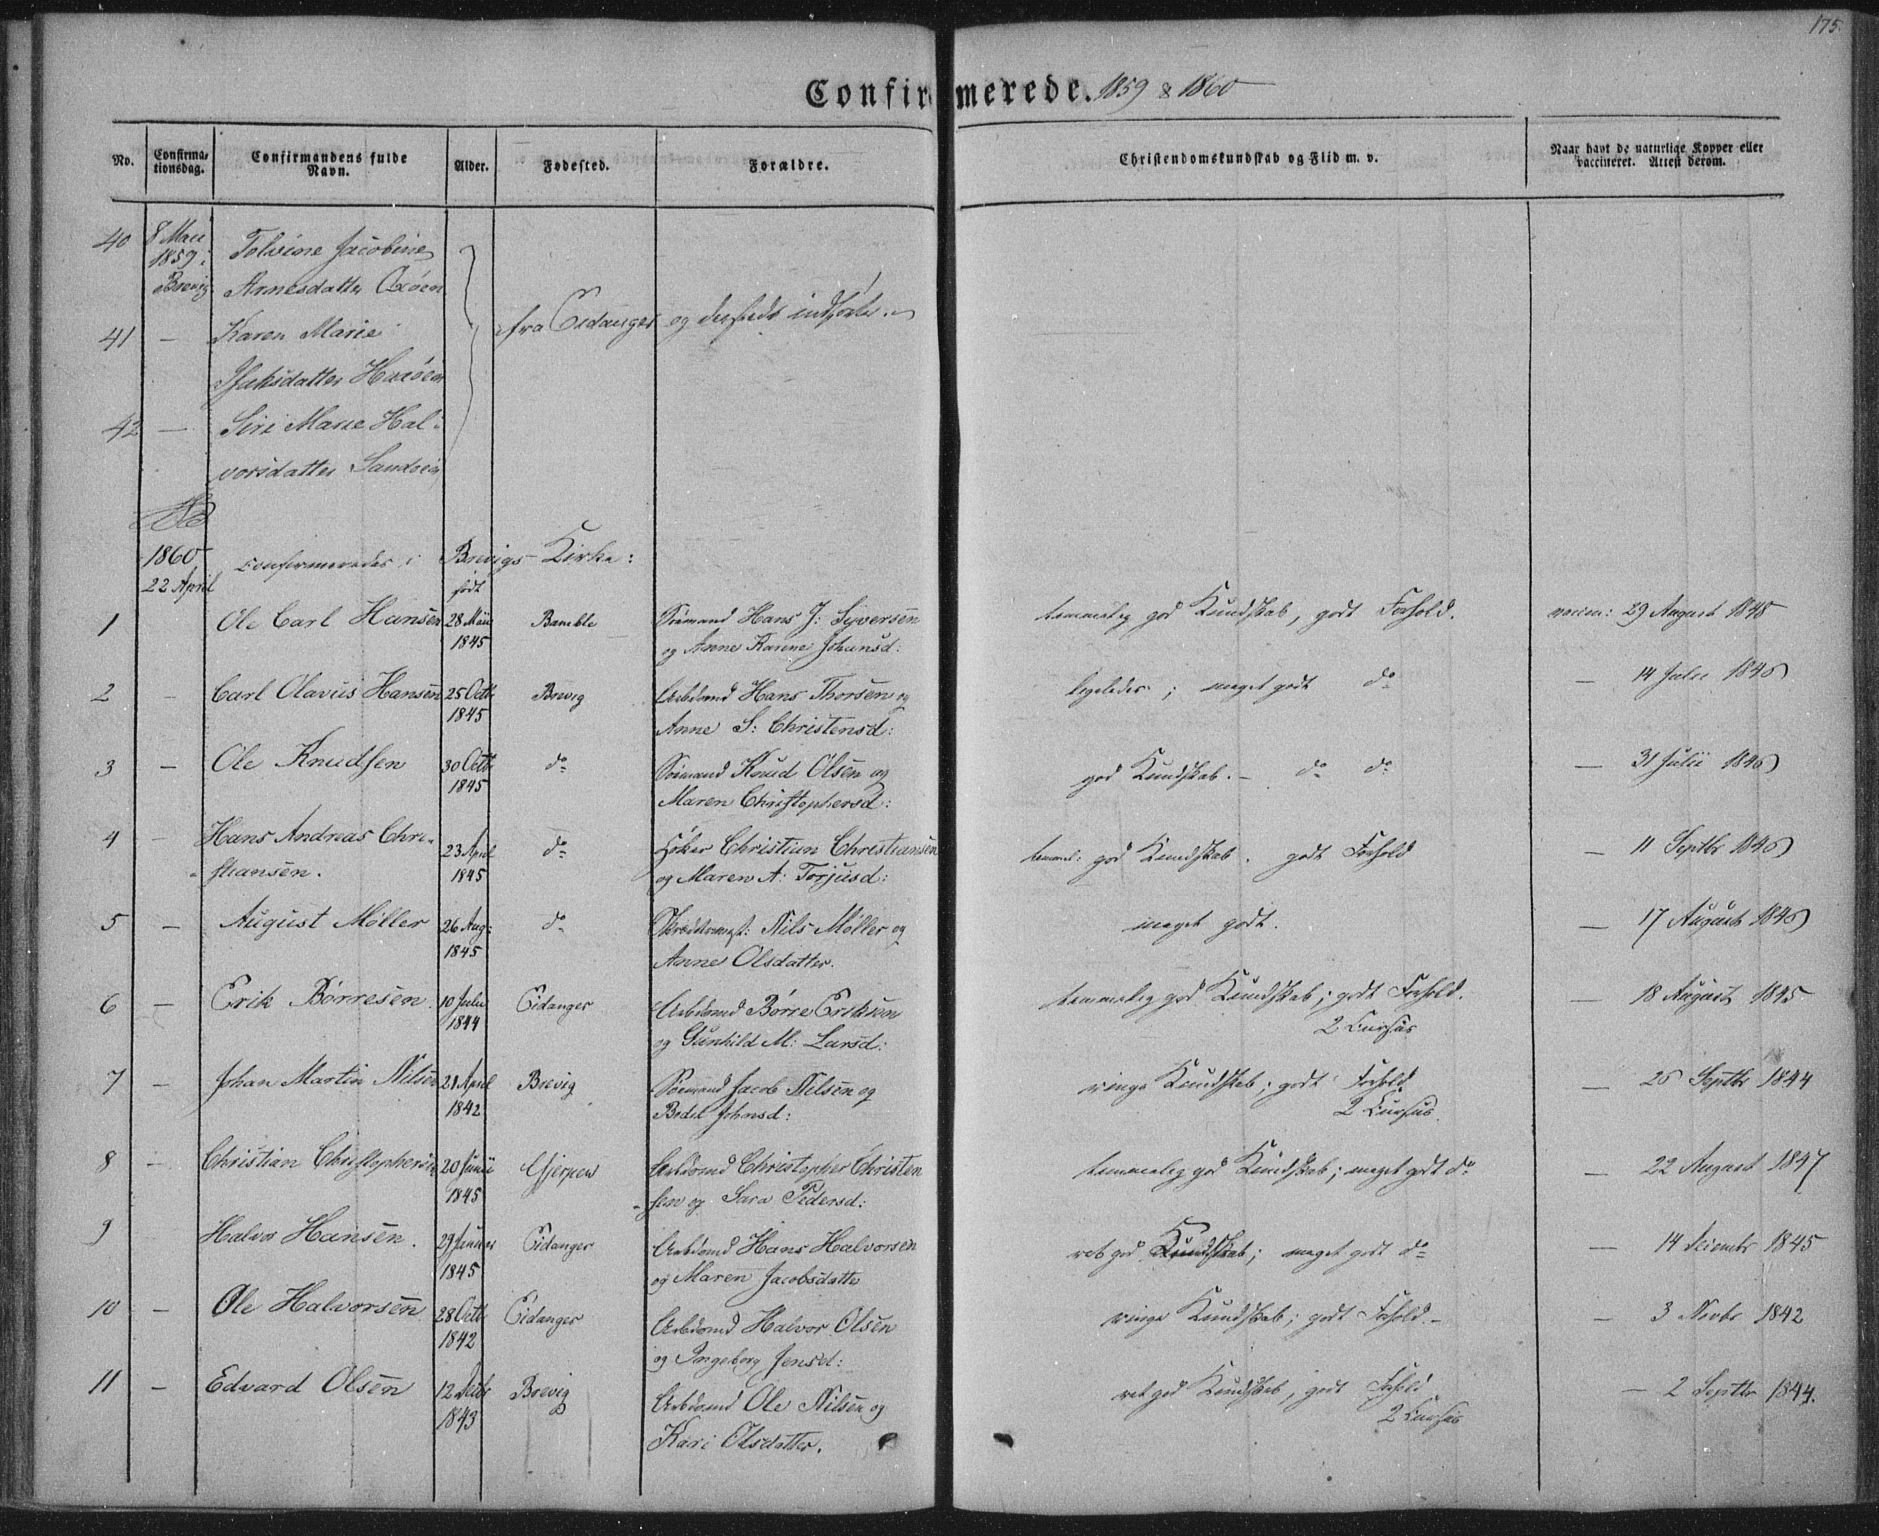 175.
Confirmerede. 1859 & 1860
No.
Confirma-
tionsdag.
Confirmandens fulde
Navn.
Alder.
Fødested.
Forældre.
Christendomskundskab og Flid m. v.
Naar havt de naturlige Kopper eller
vaccineret. Attest derom.
40 8 Mai Tolvine Jacobine
1859 i
Brevig Arnesdatter
41 — Karen Marie
fra Eidanger og dersteds indførte.
Isaksdatter
42 — Siri Marie Hal-
vorsdatter
1860 confirmeredes i Brevigs Kirke:
22 April født
1 Ole Carl Hansen 28 Mai Bamble Sømand Hans J: Syversen temmelig god Kundskab, godt Forhold. vaccin: 29 August 1845
1845 og Anne Karine Johansd:
2 — Carl Olavus Hansen 25 Octb Brevig Arbdsmd Hans Thorsen og ligeledes; meget godt do — 14 Julii 1846
1845 Anne S: Christensd:
3 — Ole Knudsen 30 Octb do Sømand Knud Olsen og god Kundskab. — do do — 31 Julii 1846
1845 Maren Christophersd:
4 — Hans Andreas Chri- 23 April do Høker Christian Christiansen temmel: god Kundskab. godt Forhold — 11 Septbr 1846
stiansen. 1845 og Maren A: Torjusd:
5 — August Møller 26 Aug: do Skræddermst: Nils Møller og meget godt. — 17 August 1846
1845 Anne Olsdatter.
6 — Erik Børresen. 10 Julii Eidanger Arbdsmd Børre Eriksen temmelig god Kundskab; godt Forhold. — 18 August 1845
1844 og Gunhild M: Larsd: 2 Cursus
7 — Johan Martin Nilsen 21 April Brevig Sømand Jacob Nilsen og ringe Kundskab; godt Forhold. — 26 Septbr 1844
1842 Bodil Johnsd: 2 Cursus
8 — Christian Christophersen 20 Junii Gjerpen Arbdsmd Christopher Christen temmelig god Kundskab; meget godt do — 22 August 1847
1845 -sen og Sara Pedersd:
9 Halvor Hansen. 29 Januar Eidanger Arbdsmd Hans Halvorsen ret god Kundskab; meget godt do — 14 Decembr 1845
1845 og Maren Jacobsdatter
10 — Ole Halvorsen 28 Octb Eidanger Arbdsmd Halvor Olsen ringe Kundskab; godt Forhold — 3 Novbr 1842
1842 og Ingeborg Jensd:
11 — Edvard Olsen 12 Decbr Brevig Arbdsmd Ole Nilsen og ret god Kundskab, godt Forhold — 2 Septbr 1844.
1843 Kari Olsdatter. 2 Cursus